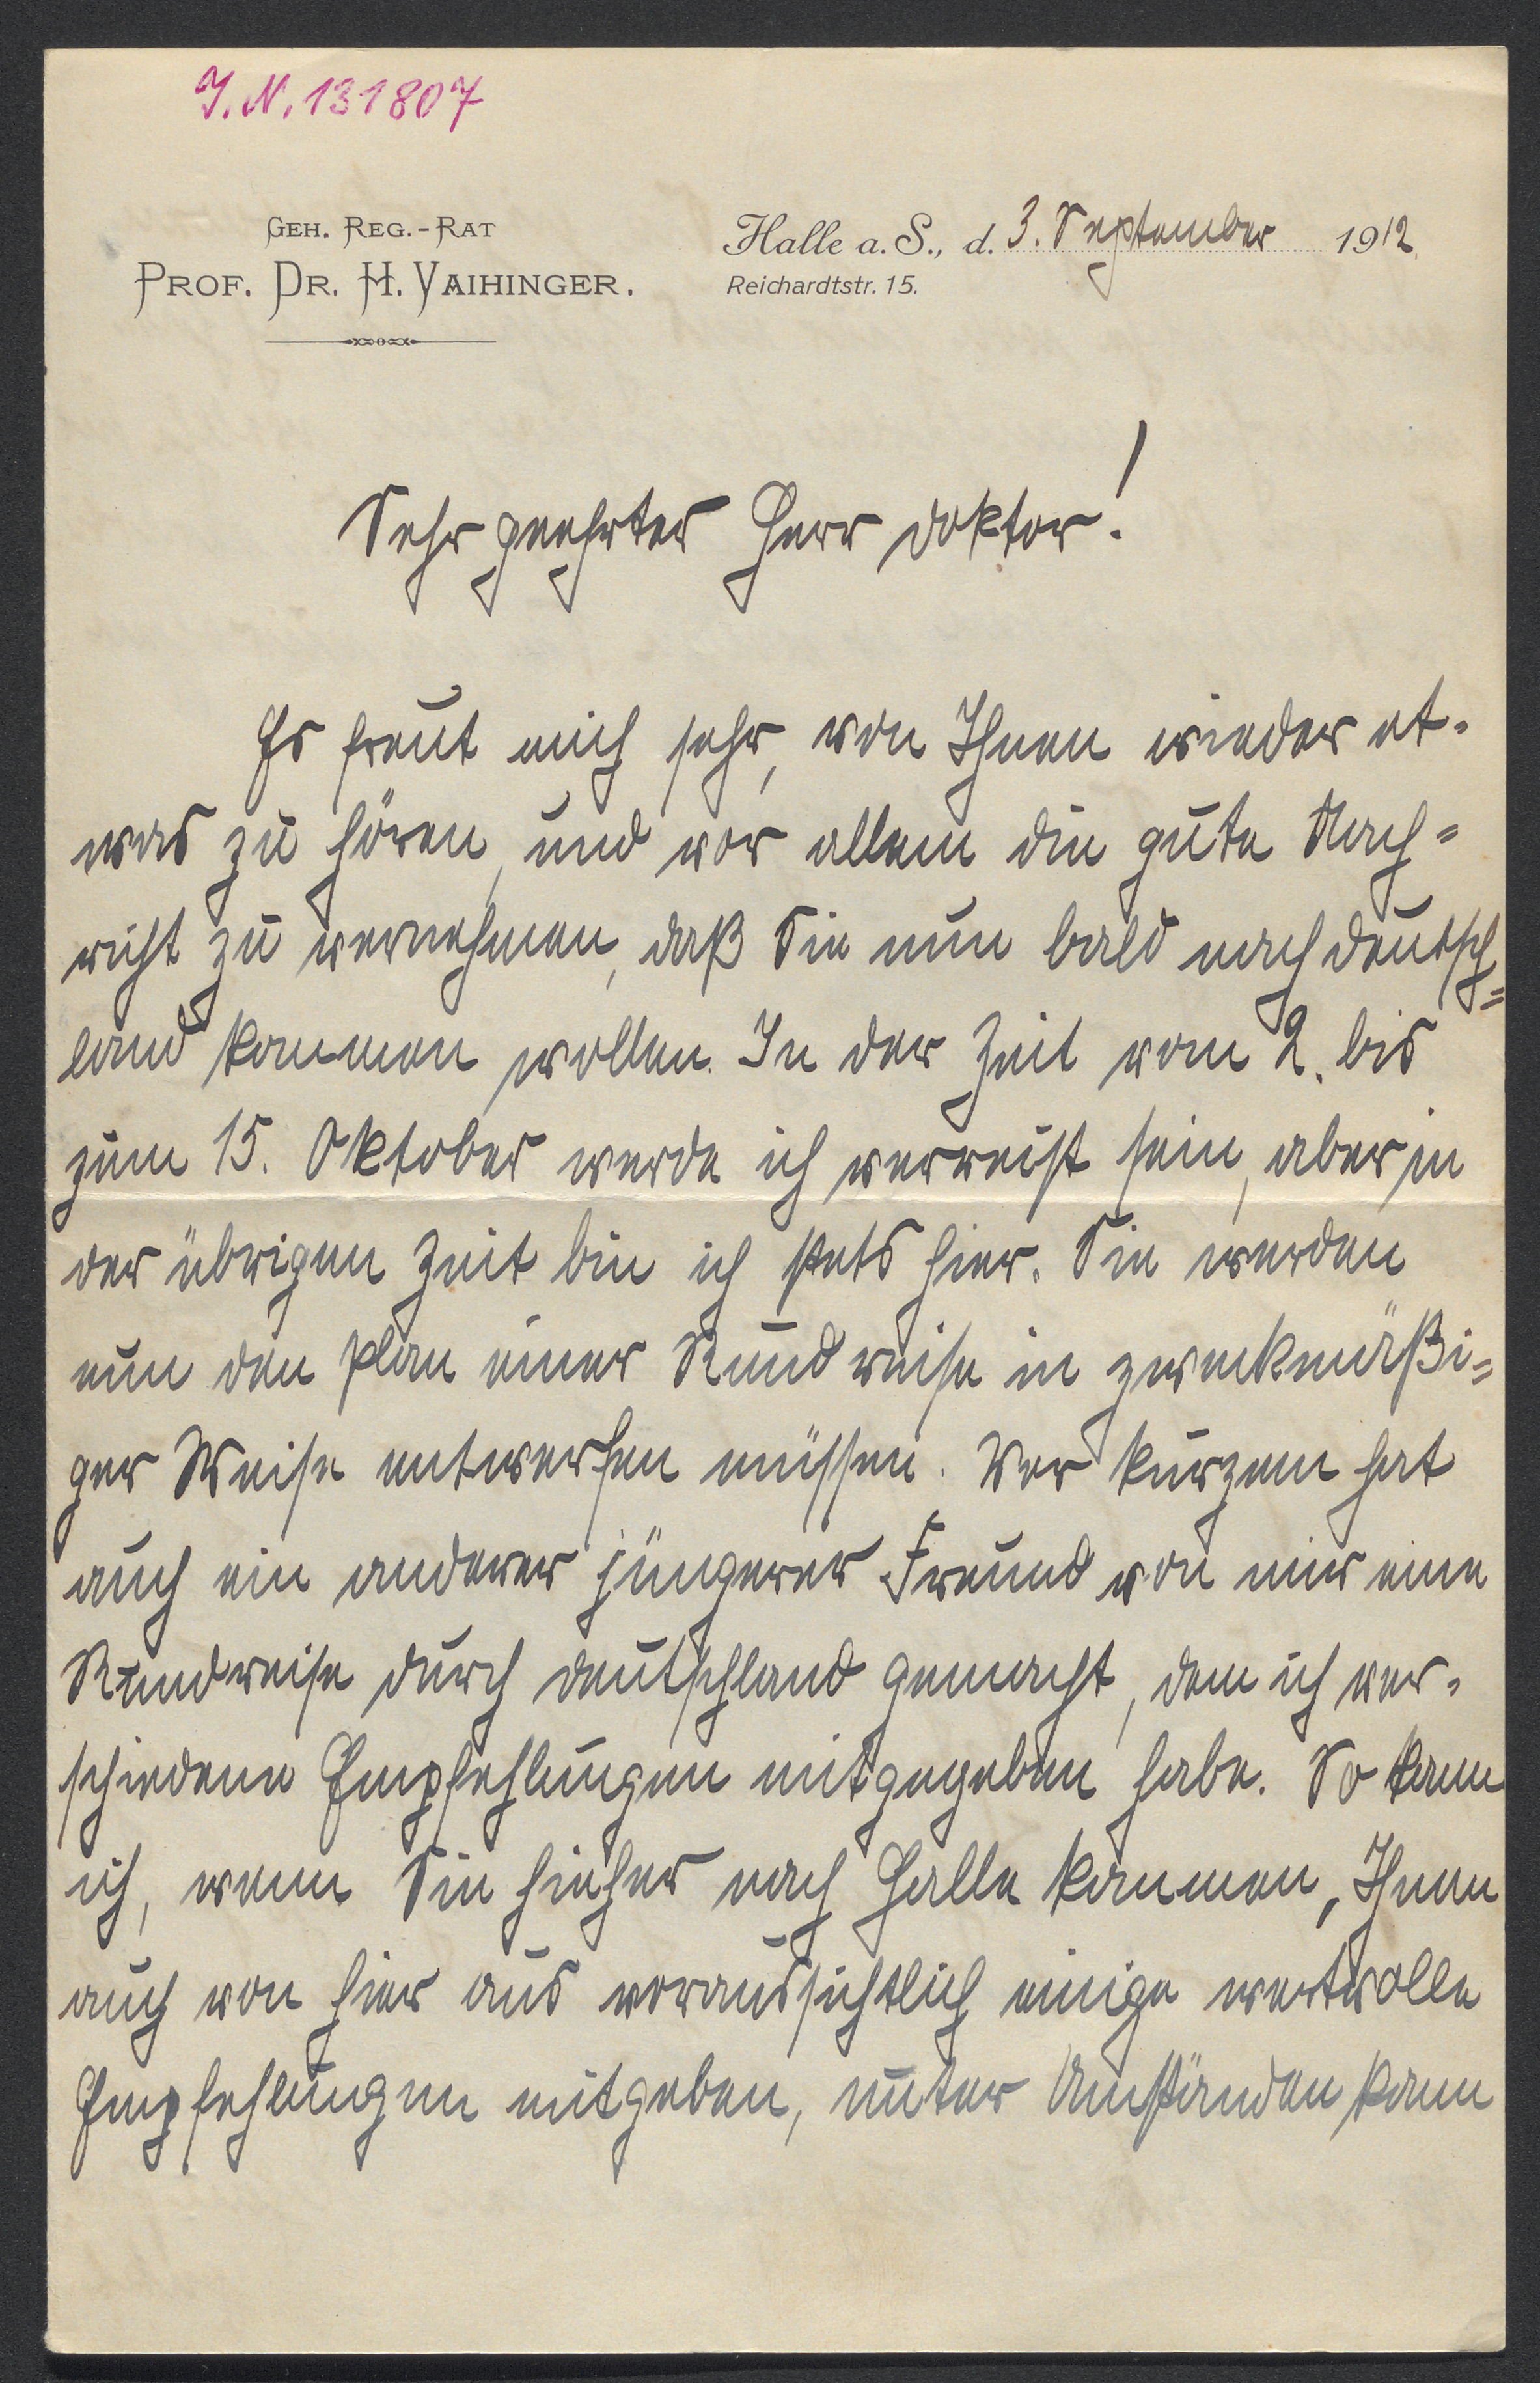 J. N. 131807
GEH. REG.-RAT
PROF. DR. H. VAIHINGER.
Halle a. S., d. 3. September 1912.
Reichardtstr. 15.
Sehr geehrter Herr Doktor!
Es freut mich sehr, von Ihnen wieder et-
was zu hören, und vor allem die gute Nach-
richt zu vernehmen, daß Sie nun bald nach Deutsch-
land kommen wollen. In der Zeit vom 2. bis
zum 15. Oktober werde ich verreist sein, aber in
der übrigen Zeit bin ich stets hier. Sie werden
nun den Plan einer Rundreise in zweckmäßi-
ger Weise entwerfen müssen. Vor kurzem hat
auch ein anderer jüngerer Freund von mir eine
Rundreise durch Deutschland gemacht, dem ich ver-
schiedene Empfehlungen mitgegeben habe. So kann
ich, wenn Sie hieher nach Halle kommen, Ihnen
auch von hier aus voraussichtlich einige wertvolle
Empfehlungen mitgeben, unter Umständen kann